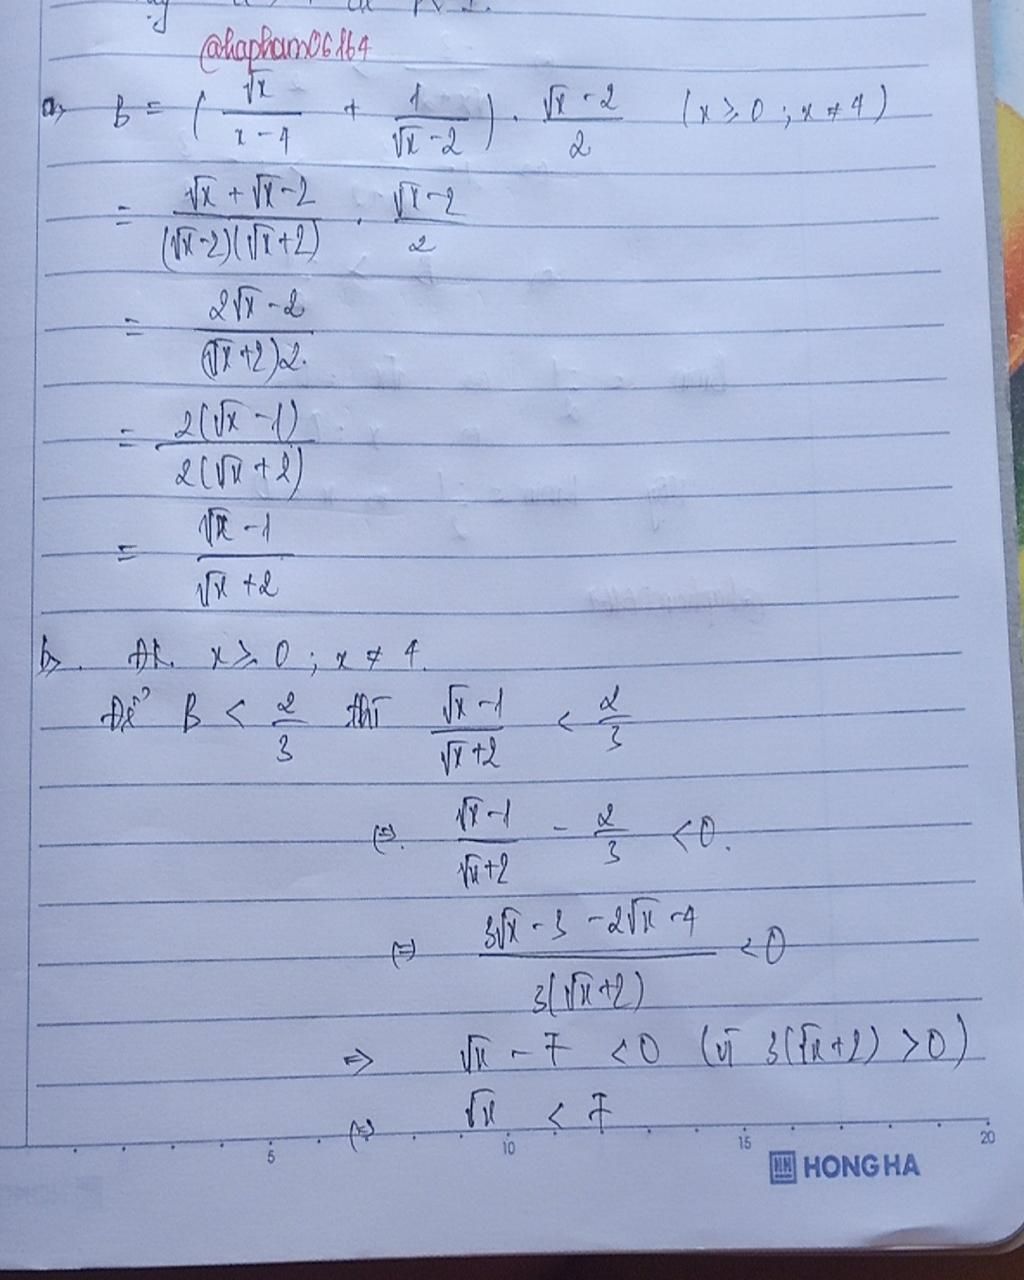 @hapham06164
a, B = ( √x / x - 4 + 1 / √x - 2 ) . √x - 2 / 2 (x ≥ 0 ; x ≠ 4)
= √x + √x - 2 / (√x - 2)(√x + 2) . √x - 2 / 2
= 2√x - 2 / (√x + 2)2.
= 2(√x - 1) / 2(√x + 2)
= √x - 1 / √x + 2
b, . ĐK. x ≥ 0 ; x ≠ 4.
Để B < 2 / 3 thì √x - 1 / √x + 2 < 2 / 3
(=). √x - 1 / √x + 2 - 2 / 3 < 0.
(=) 3√x - 3 - 2√x - 4 / 3(√x + 2) < 0
=> √x - 7 < 0 (vì 3(√x + 2) > 0)
(=) √x < 7
5 10 15 20
HONG HA